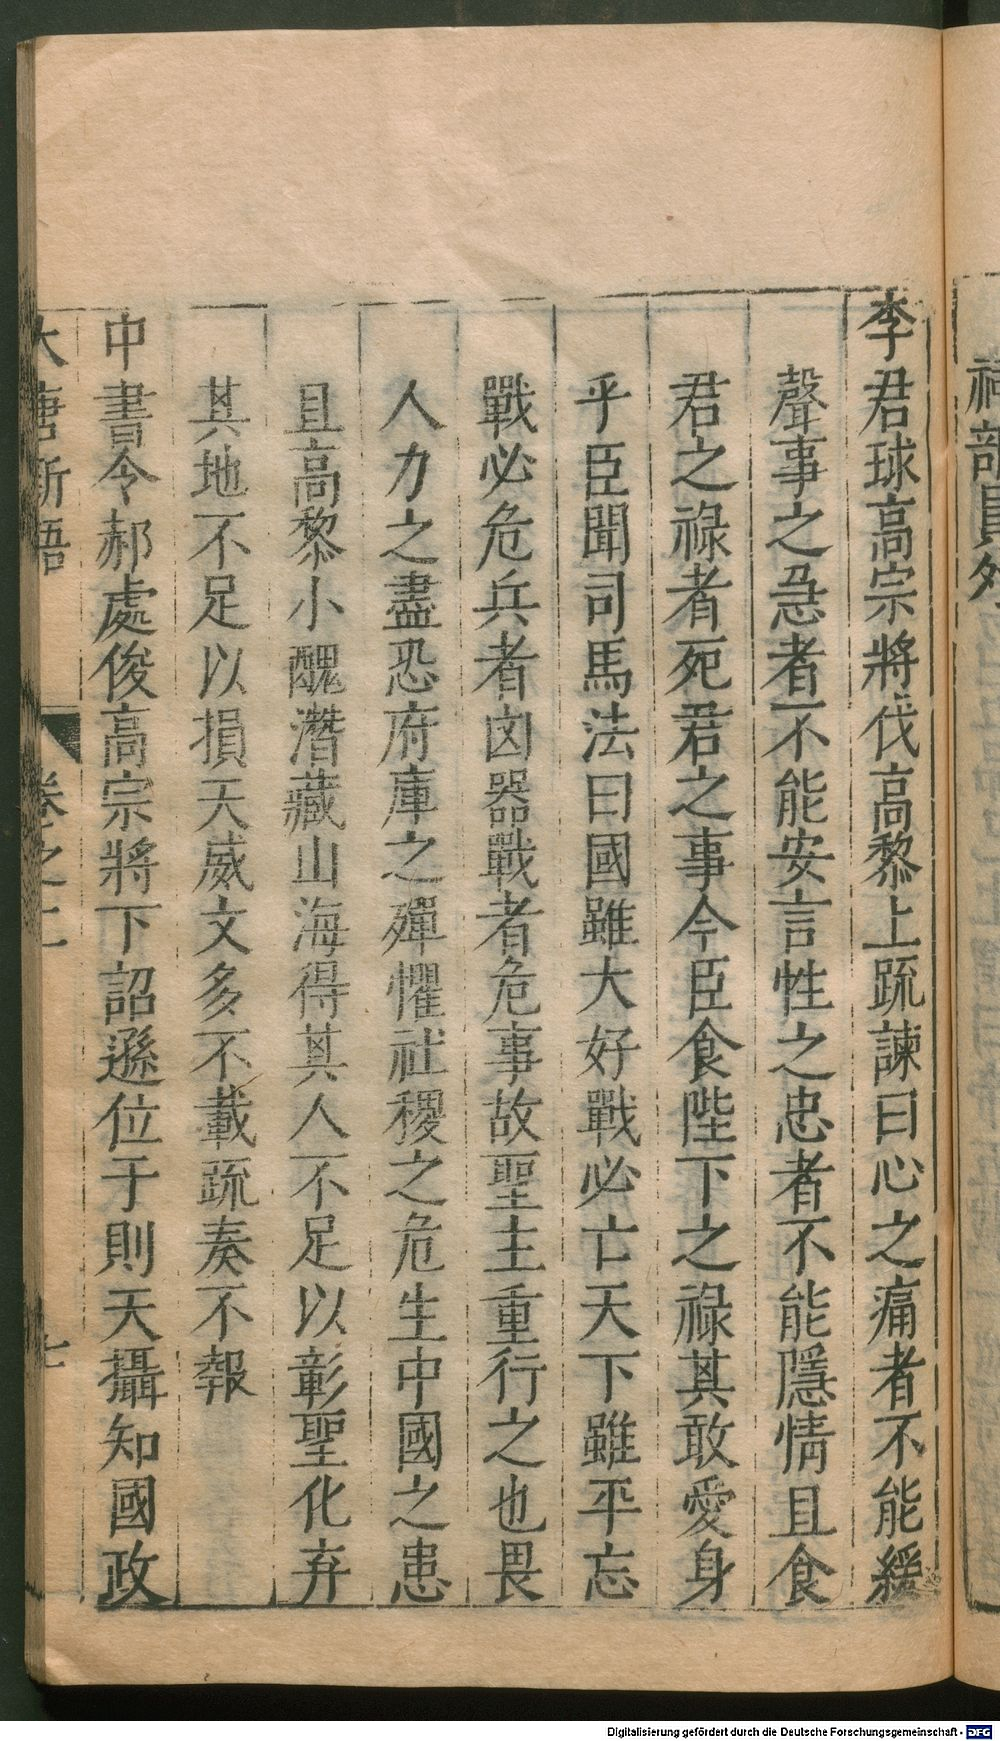 祠部員外
李君球高宗將伐高黎上疏諫曰心之痛者不能緩
聲事之急者不能安言性之忠者不能隱情且食
君之祿者死君之事今臣食陛下之祿其敢愛身
乎臣聞司馬法曰國雖大好戰必亡天下雖平忘
戰必危兵者凶器戰者危事故聖主重行之也畏
人力之盡恐府庫之殫懼社稷之危生中國之患
且高黎小醜潛藏山海得其人不足以彰聖化弃
其地不足以損天威文多不載疏奏不報
中書令郝處俊高宗將下詔遜位于則天攝知國政
大唐新語 卷之二 七
Digitalisierung gefördert durch die Deutsche Forschungsgemeinschaft - DFG